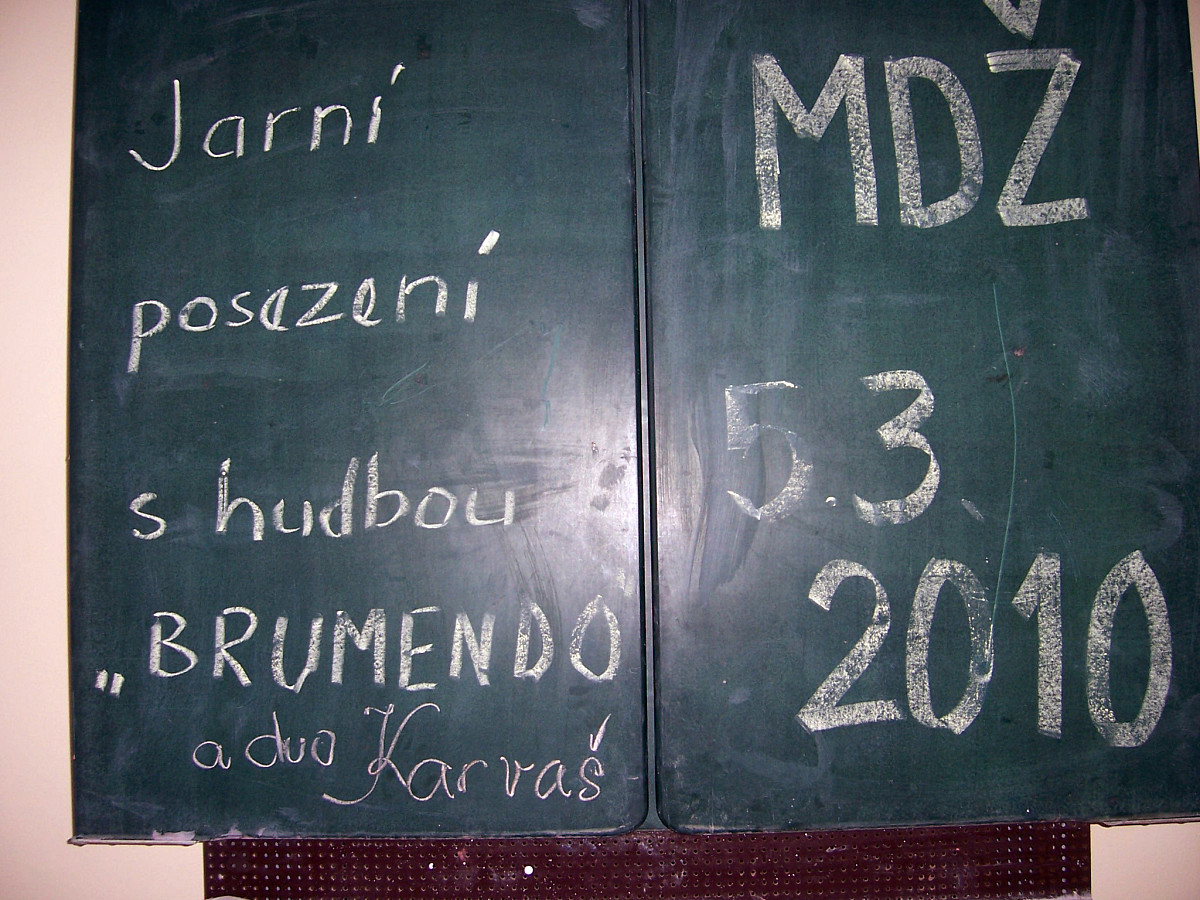 Jarní
posezení
s hudbou
„BRUMENDO
a duo Karvaš
MDŽ
5.3.
2010